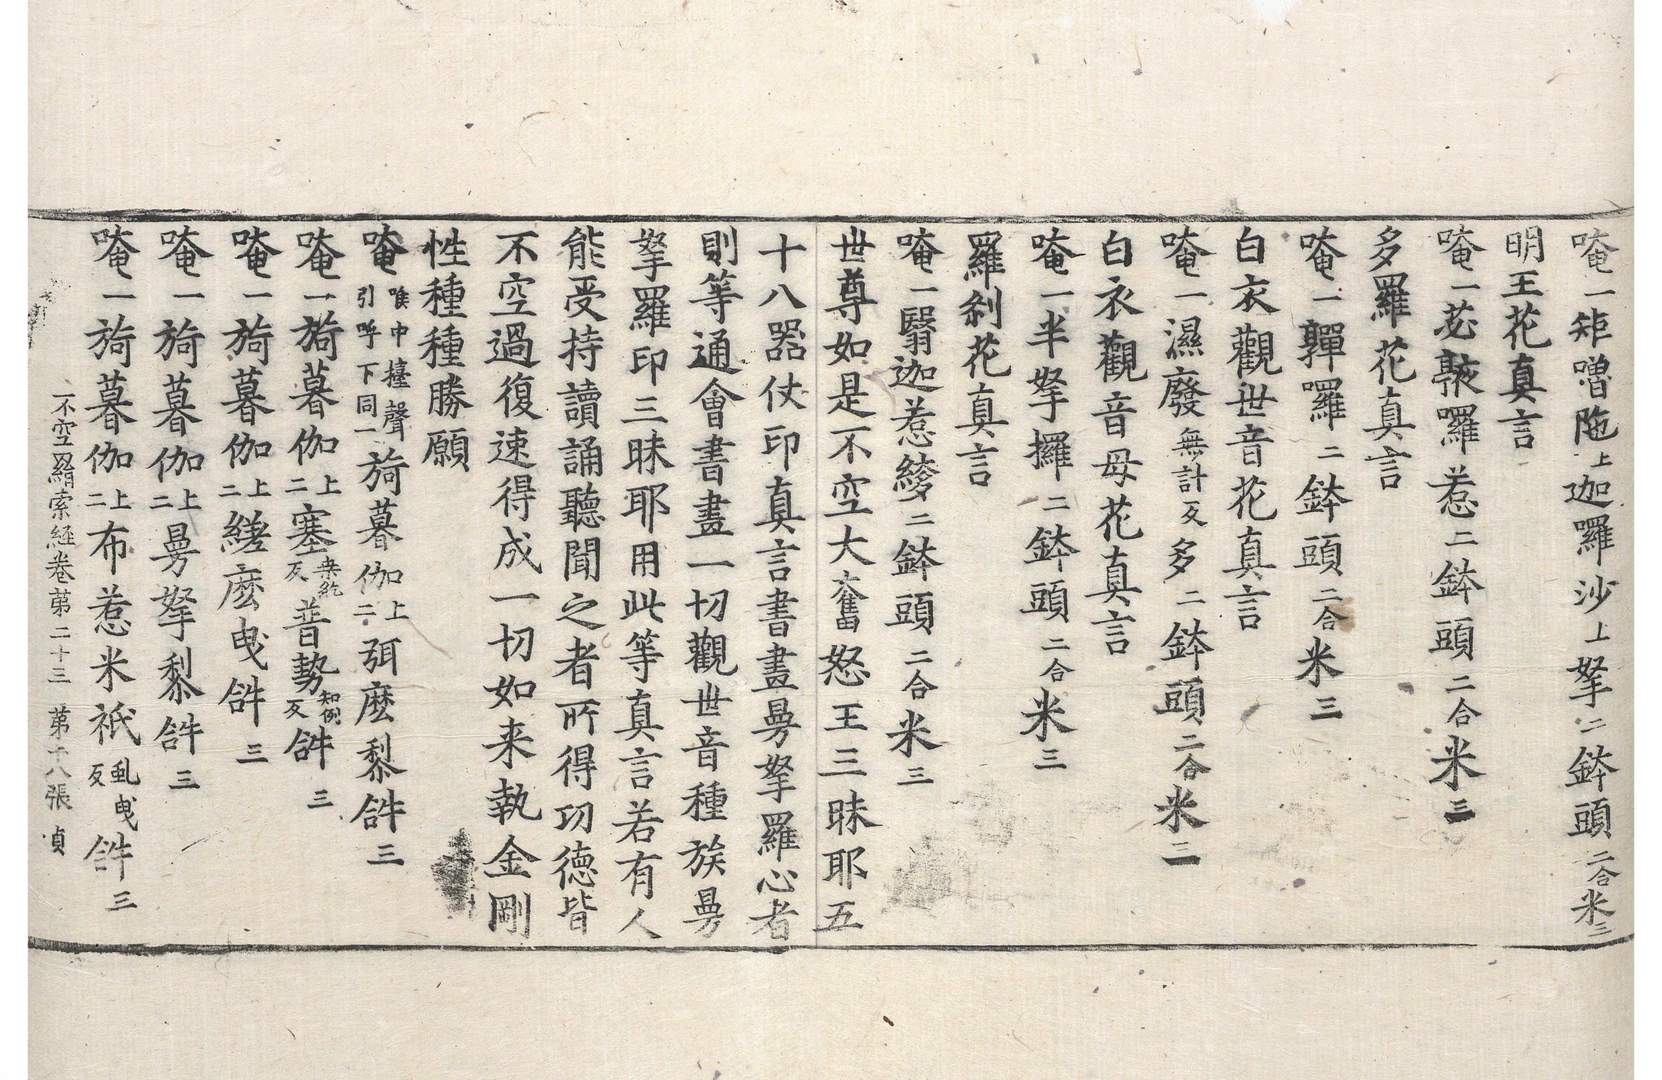 唵一矩嚕陁上迦囉沙上拏二鉢頭二合米三
明王花真言
唵一苾𠿒囉惹二鉢頭二合米三
多羅花真言
唵一䩻囉二鉢頭二合米三
白衣觀世音花真言
唵一濕廢無計反多二鉢頭二合米三
白衣觀音母花真言
唵一半拏攞二鉢頭二合米三
羅剎花真言
唵一翳迦惹㛱二鉢頭二合米三
世尊如是不空大奮怒王三昧耶五
十八器仗印真言書畫曼拏羅心者
則等通會書畫一切觀世音種族曼
拏羅印三昧耶用此等真言若有人
能受持讀誦聽聞之者所得功德皆
不空過復速得成一切如来執金剛
性種種勝願
唵喉中擡聲引呼下同一旖暮伽上二弭麼黎𤙖三
唵一旖暮伽上二塞桒紇反普勢知例反𤙖三
唵一旖暮伽上二縒麼曳𤙖三
唵一旖暮伽上二曼拏黎𤙖三
唵一旖暮伽上二布惹米祇虬曳反𤙖三
不空羂索經卷第二十三 第十八張 貞